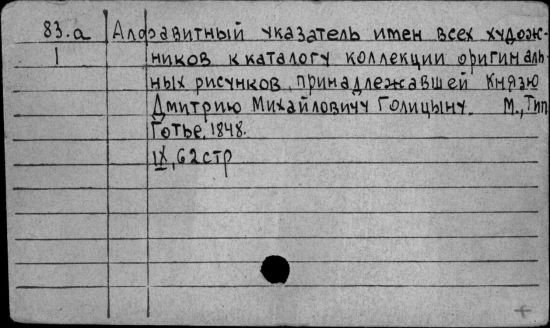 83.а Алфавитный указатель имен всех худож-
1 ников к каталогу коллекции оригиналь-
ных рисунков, принадлежавшей Князю
Дмитрию Михайловичу Голицыну. М., Тип
Готье, 1848.
IX, 62 стр